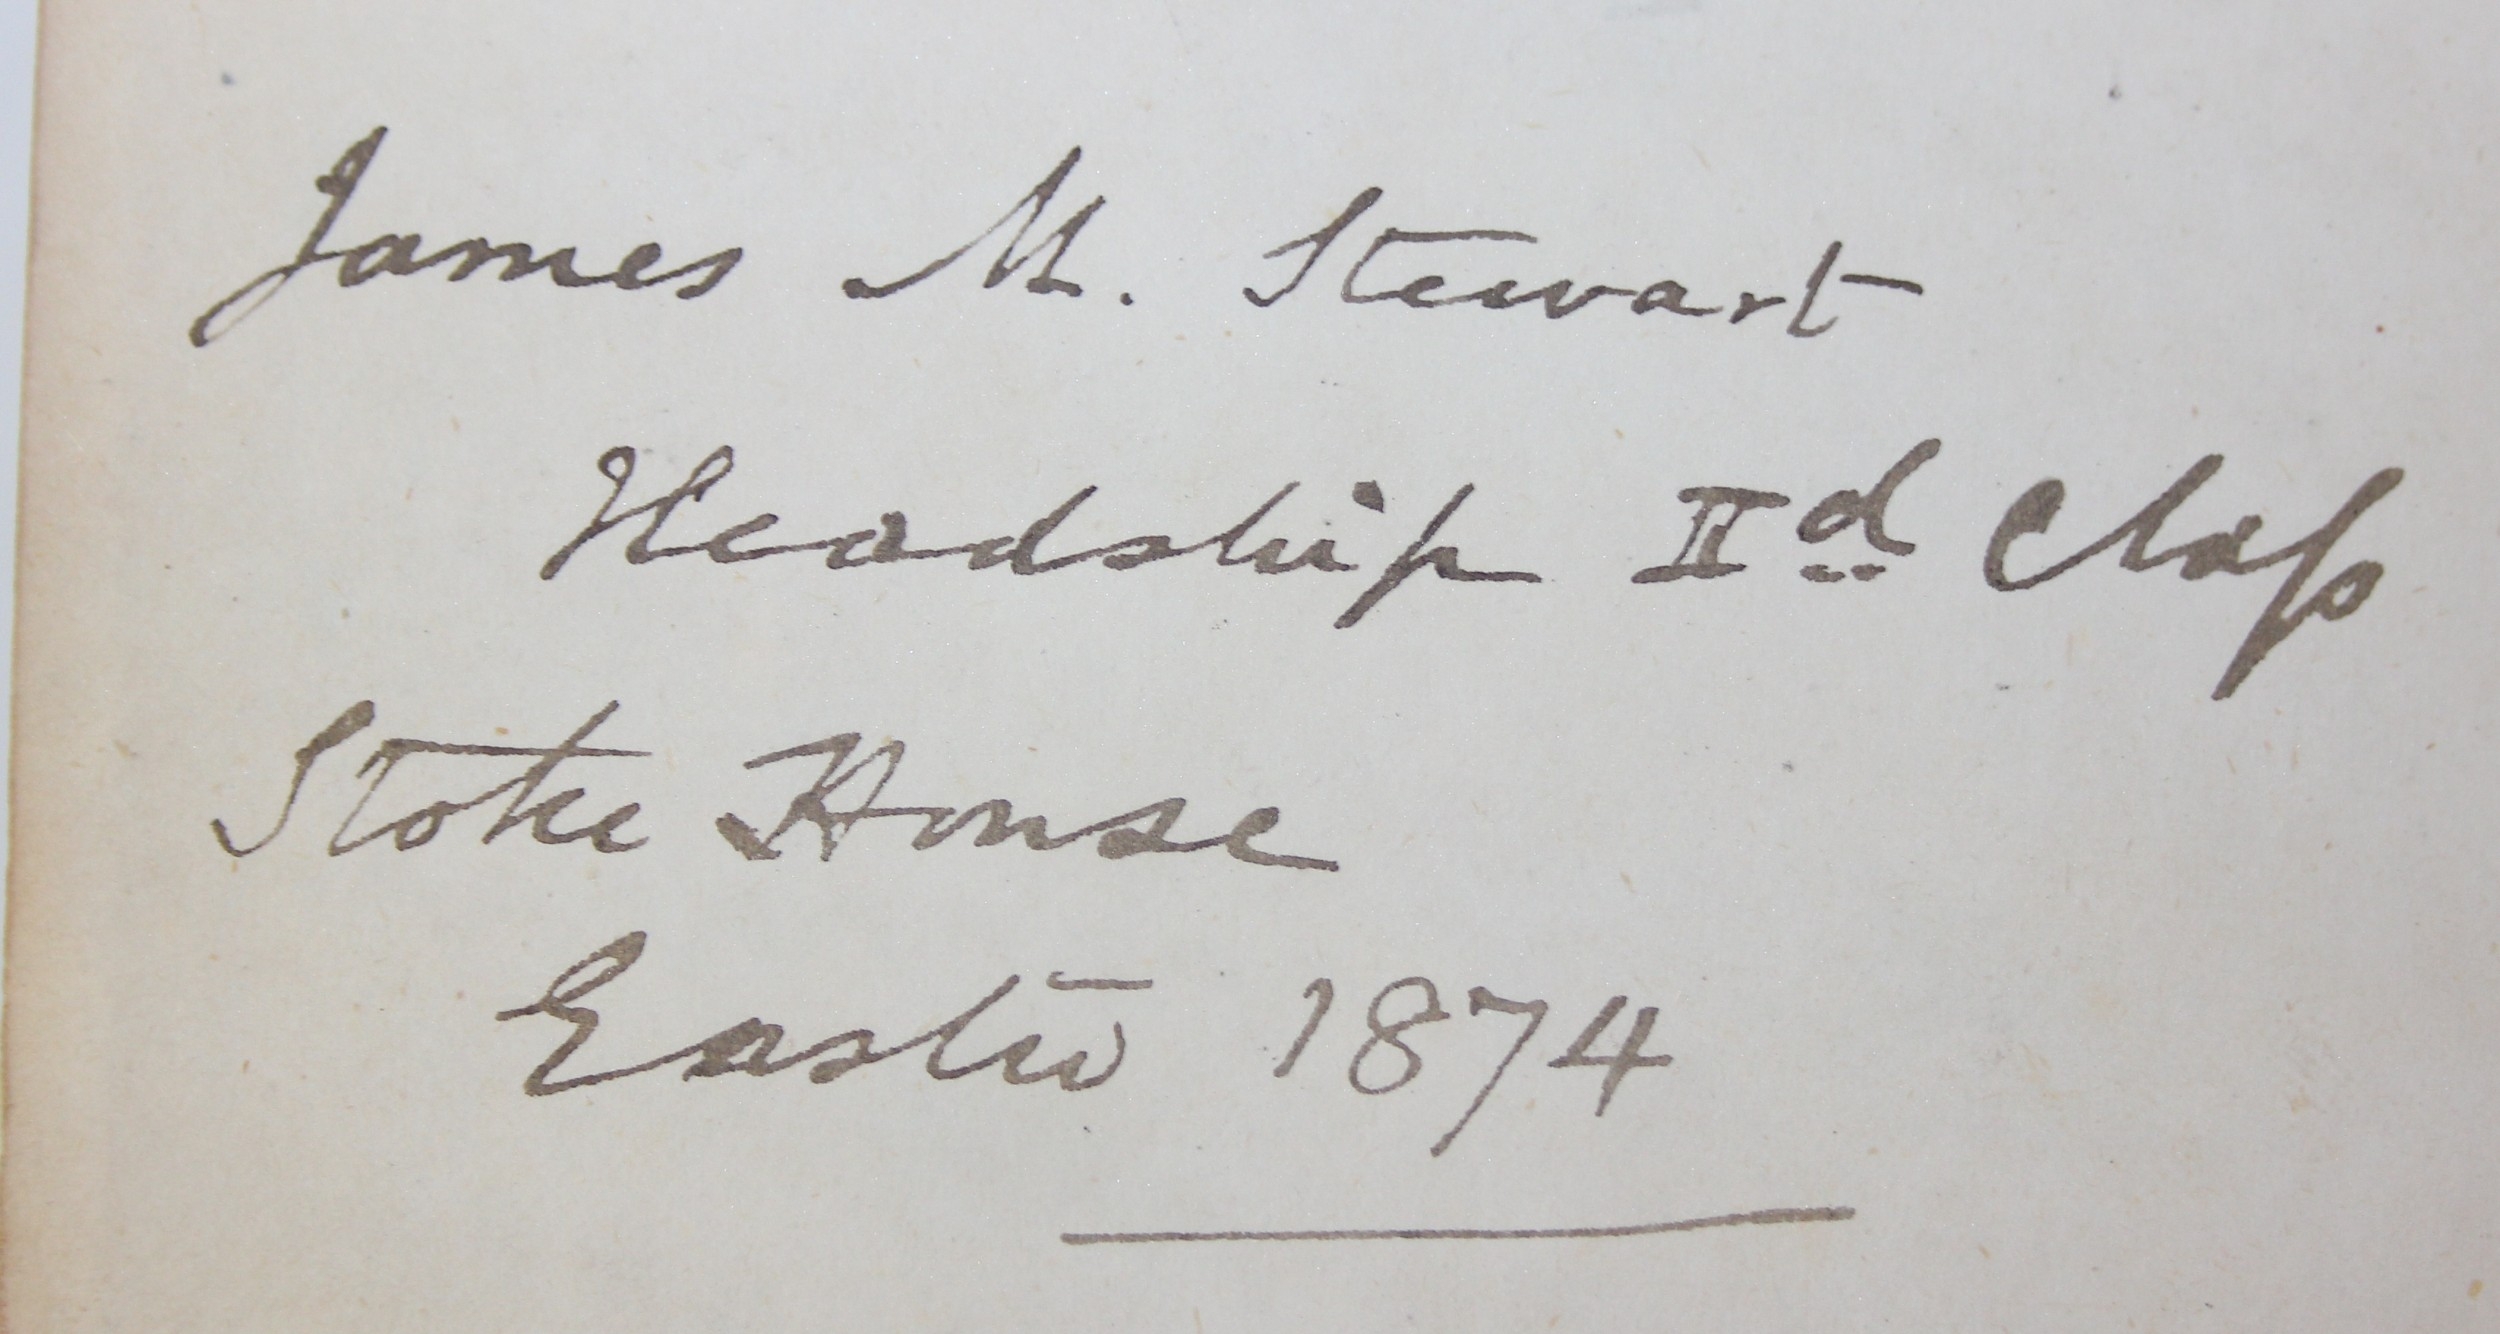 James M. Stewart
Headship IId Claſs
Stoke House
Easter 1874